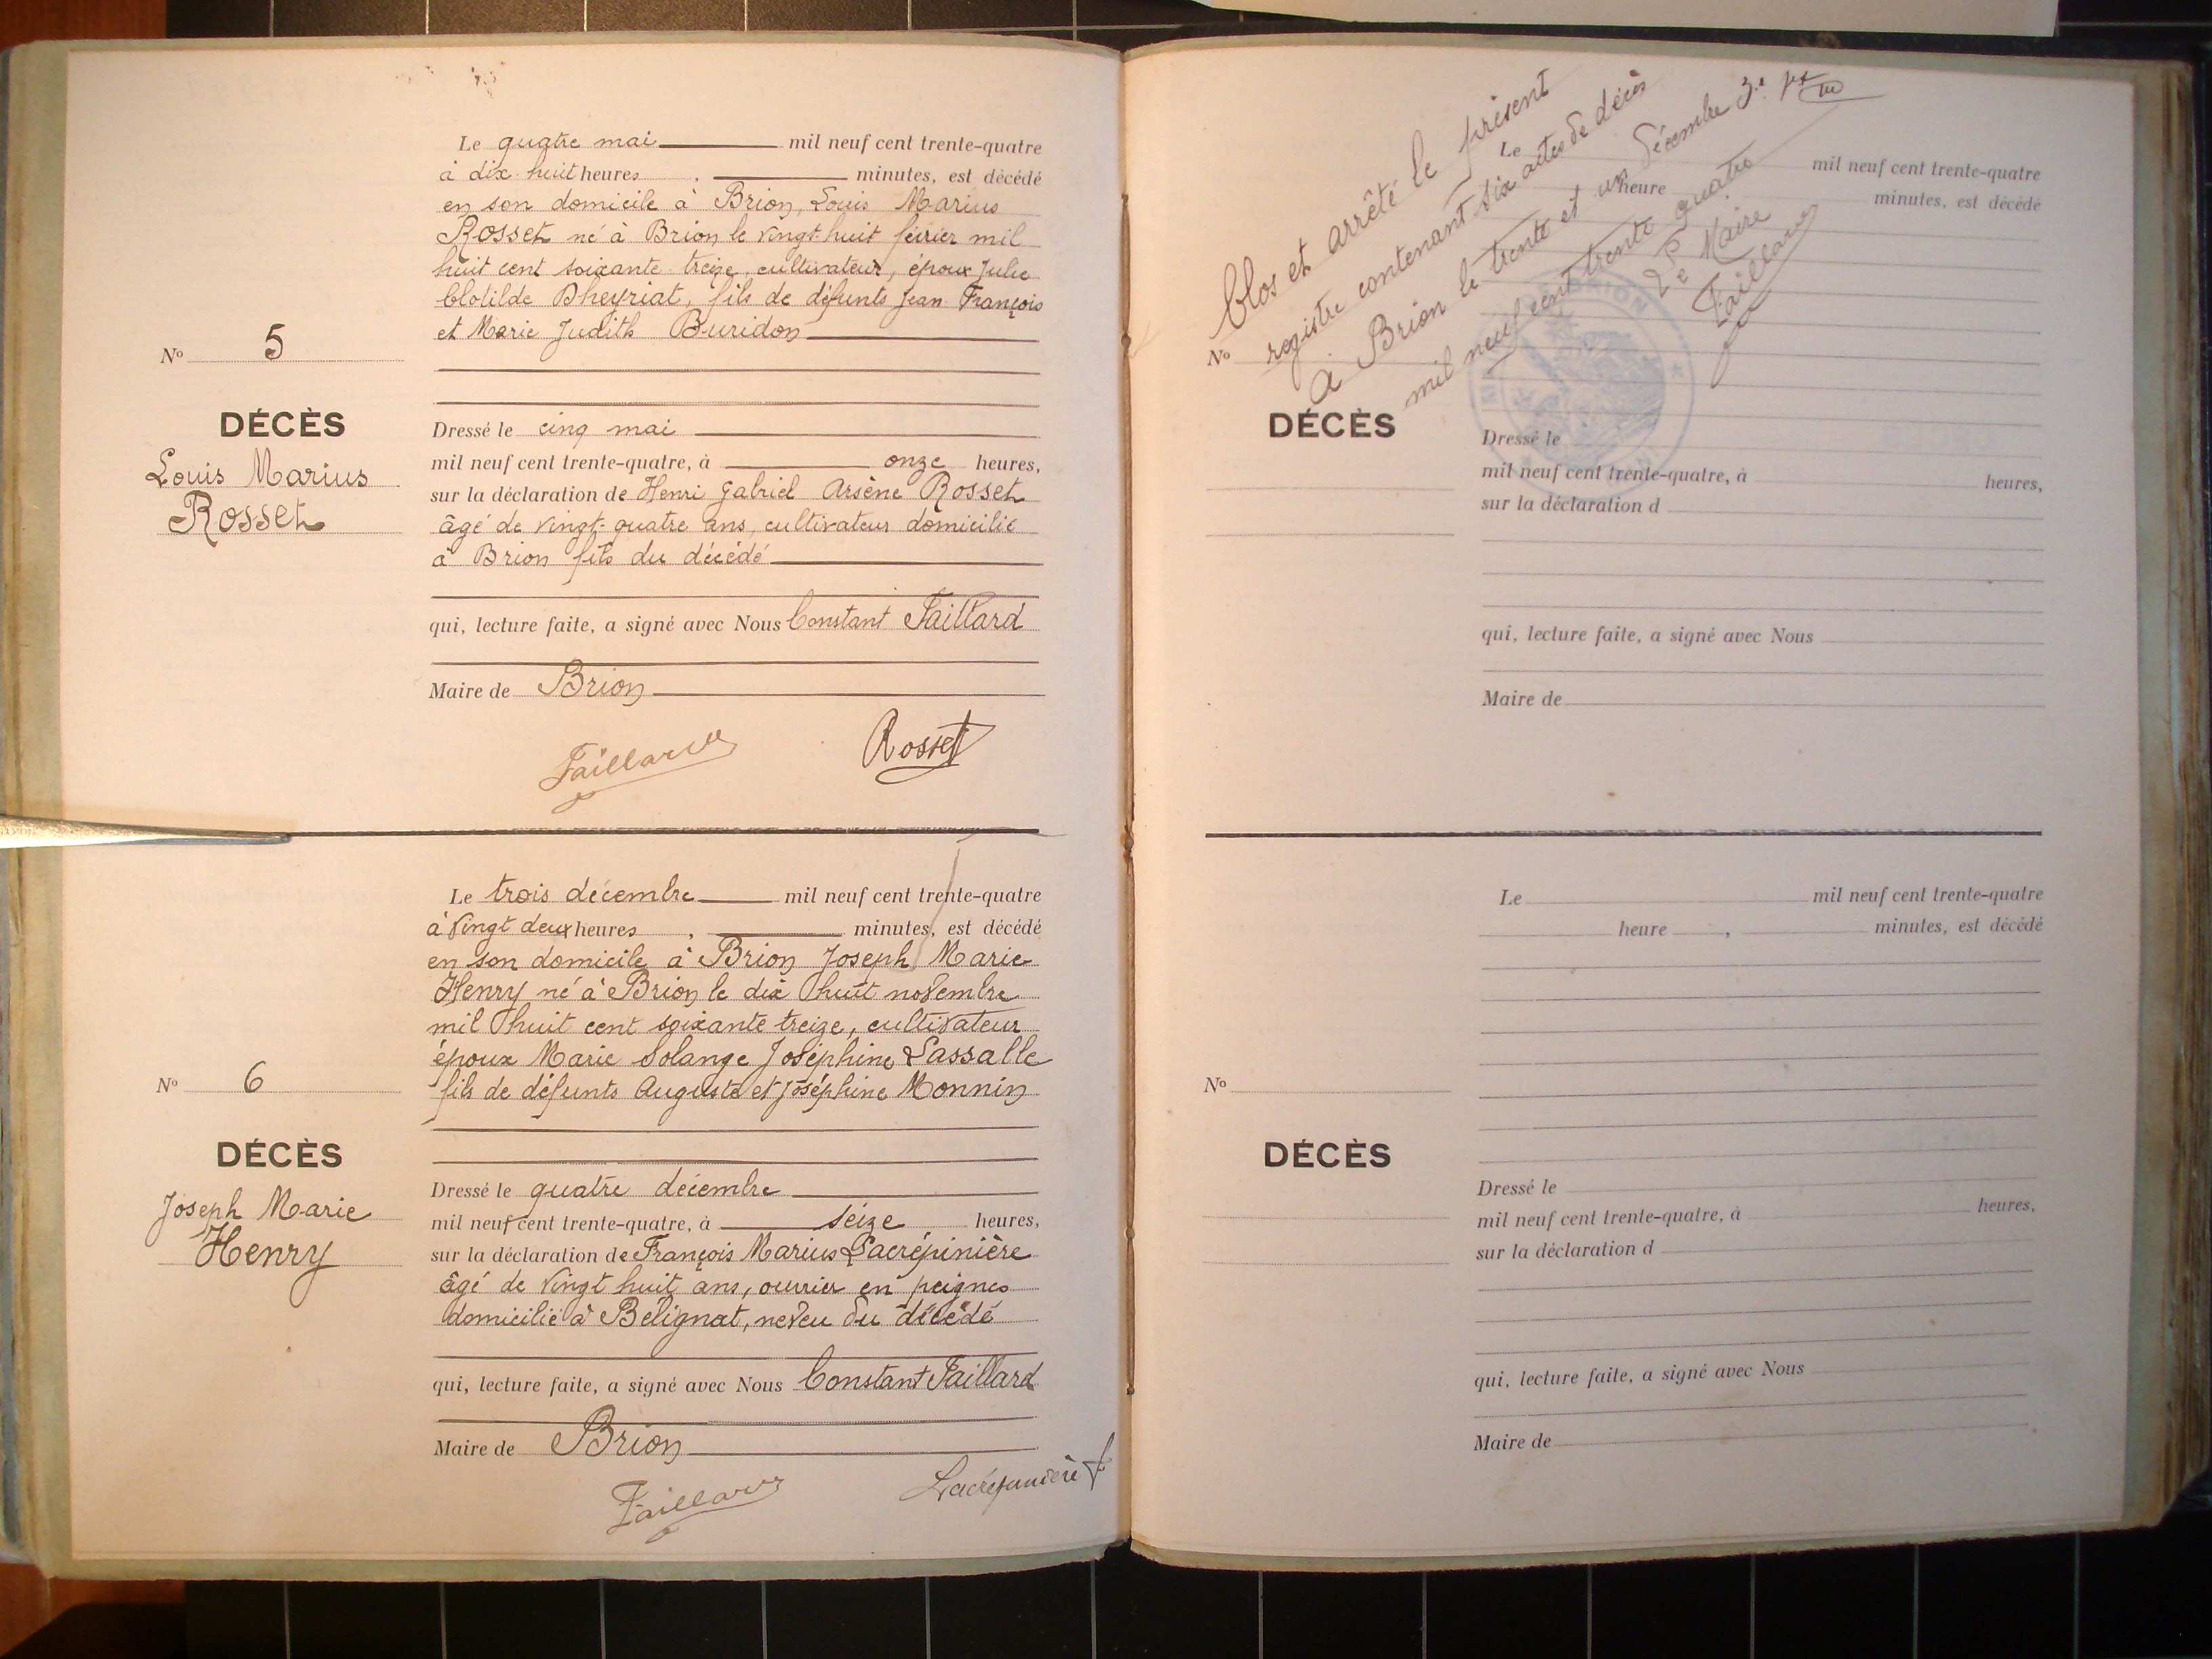 Le quatre mai mil neuf cent trente-quatre
à dix huit heures , minutes, est décédé
en son domicile à Brion, Louis Marius
Rosset né à Brion le vingt-huit février mil
huit cent soixante treize, cultivateur, époux Julie
Clotilde Dheyriat, fils de défunts Jean François
et Marie Judith Buridon
No 5
DÉCÈS
Louis Marius
Rosset
Dressé le cinq mai
mil neuf cent trente-quatre, à onze heures,
sur la déclaration de Henri Gabriel Arsène Rosset
âgé de vingt-quatre ans, cultivateur domicilié
à Brion fils du décédé
qui, lecture faite, a signé avec Nous Constant Taillard
Maire de Brion
Taillard Rosset
Le trois décembre mil neuf cent trente-quatre
à vingt deux heures , minutes, est décédé
en son domicile à Brion Joseph Marie
Henry né à Brion le dix huit novembre
mil huit cent soixante treize, cultivateur
époux Marie Solange Joséphine Lassalle
fils de défunts Auguste et Joséphine Monnin
No 6
DÉCÈS
Joseph Marie
Henry
Dressé le quatre décembre
mil neuf cent trente-quatre, à seize heures,
sur la déclaration de François Marius Lacrépinière
âgé de vingt huit ans, ouvrier en peignes
domicilié à Bélignat, neveu du décédé
qui, lecture faite, a signé avec Nous Constant Taillard
Maire de Brion
Taillard Lacrépinière f
Clos et arrêté le présent
registre contenant six actes de décès
à Brion le trente et un décembre
mil neuf cent trente quatre
Le Maire
Taillard
Le mil neuf cent trente-quatre
heure minutes, est décédé
No
DÉCÈS
Dressé le
mil neuf cent trente-quatre, à heures,
sur la déclaration d
qui, lecture faite, a signé avec Nous
Maire de
Le mil neuf cent trente-quatre
heure , minutes, est décédé
No
DÉCÈS
Dressé le
mil neuf cent trente-quatre, à heures,
sur la déclaration d
qui, lecture faite, a signé avec Nous
Maire de